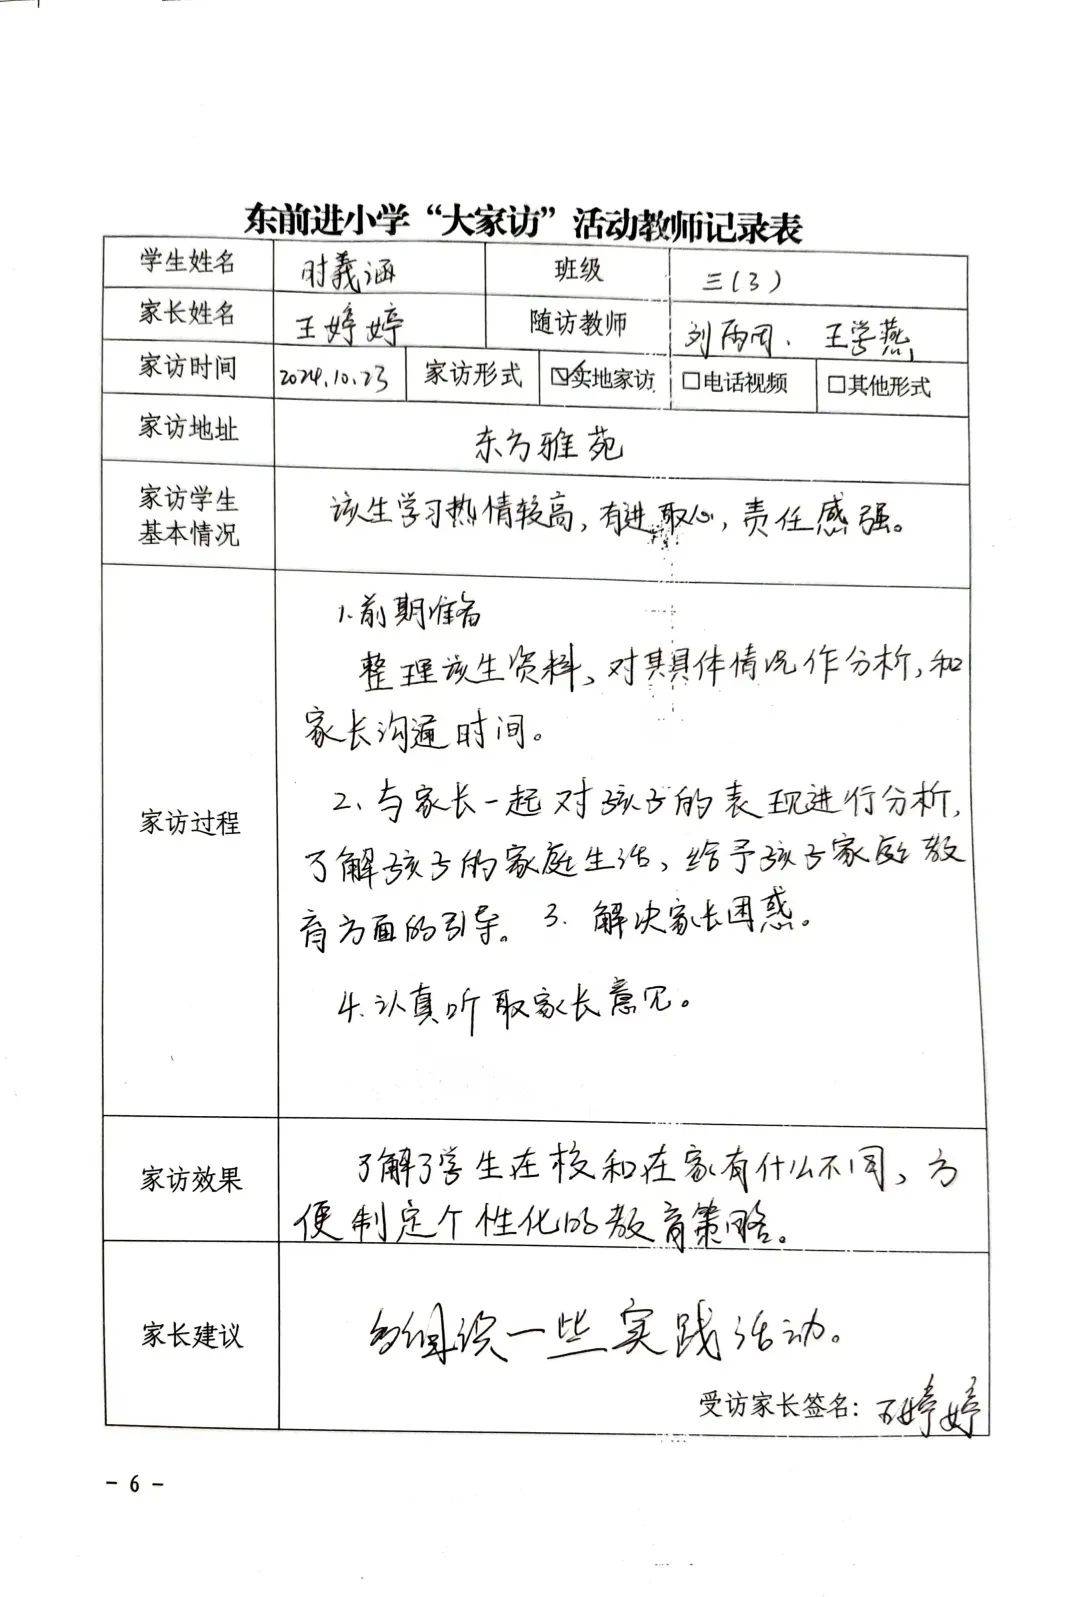 东前进小学“大家访”活动教师记录表
学生姓名 时義涵 班级 三(3)
家长姓名 王婷婷 随访教师 刘雨 、王学燕
家访时间 2024.10.23 家访形式 ☑实地家访 □电话视频 □其他形式
家访地址 东方雅苑
家访学生
基本情况
该生学习热情较高,有进取心,责任感强。
家访过程
1.前期准备
整理该生资料、对其具体情况作分析,和
家长沟通时间。
2、与家长一起对孩子的表现进行分析,
了解孩子的家庭生活,给予孩子家庭教
育方面的引导。3. 解决家长困惑。
4.认真听取家长意见。
家访效果
了解了学生在校和在家有什么不同、方
便制定个性化的教育策略。
家长建议
多组织一些实践活动。
受访家长签名:王婷婷
- 6 -